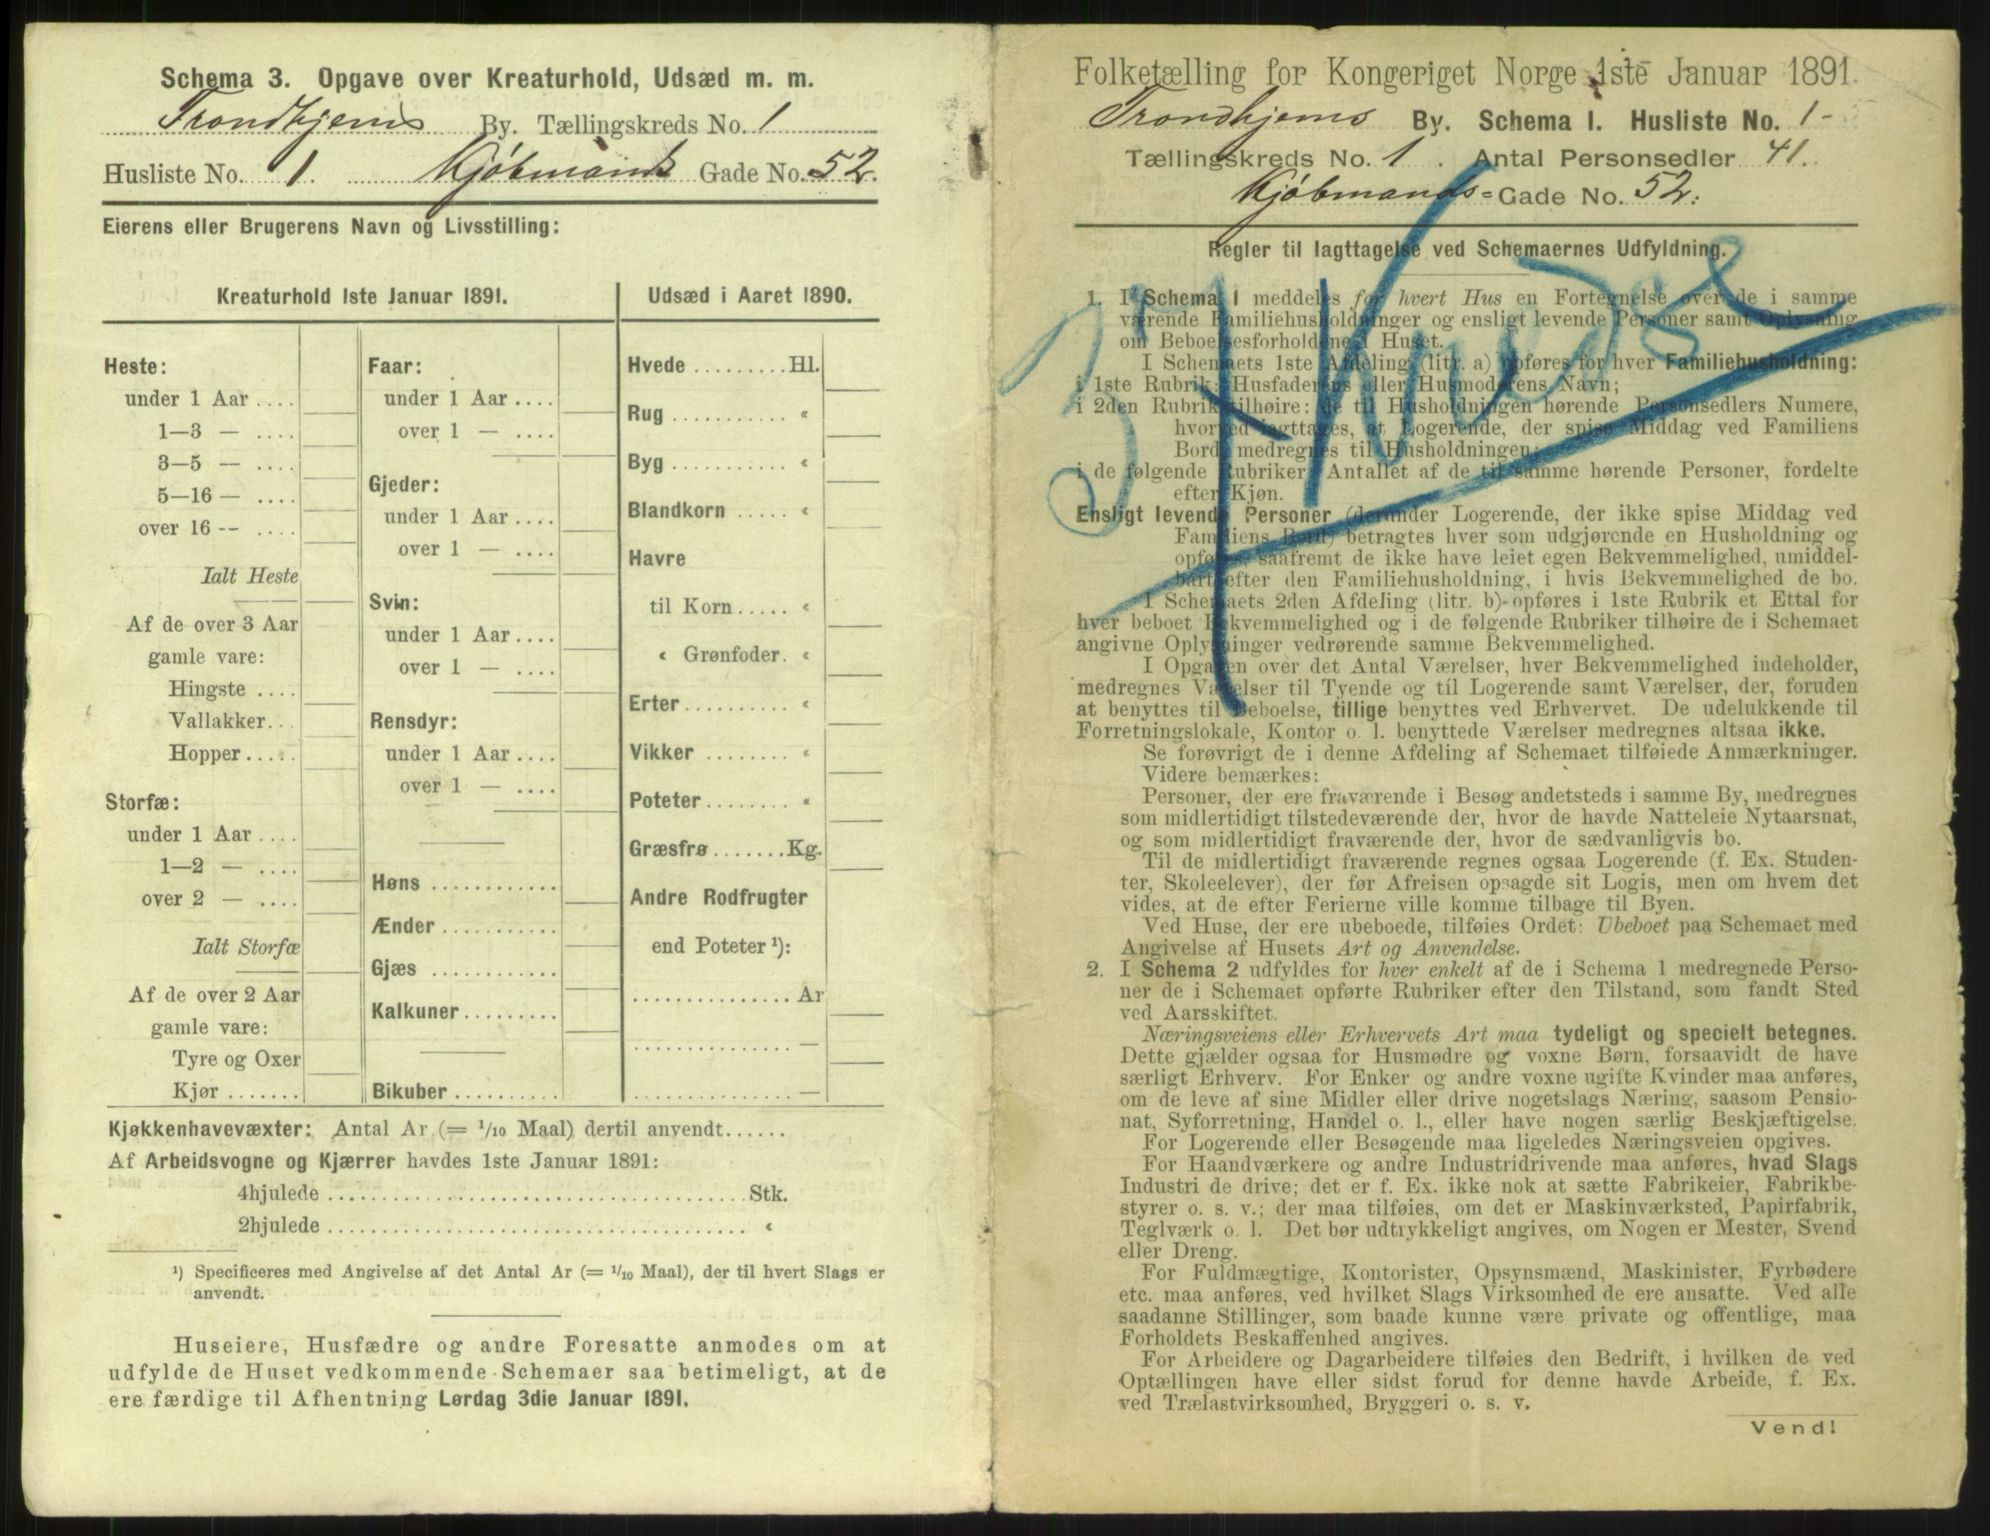 Schema 3. Opgave over Kreaturhold, Udsæd m. m.
Trondhjems By. Tællingskreds No. 1
Husliste No. 1. Kjöbmands Gade No. 52.
Eierens eller Brugerens Navn og Livsstilling:
Kreaturhold 1ste Januar 1891.
Heste:
under 1 Aar ....
1—3 — ....
3—5 — ....
5—16 — ....
over 16 -- ....
Ialt Heste
Af de over 3 Aar
gamle vare:
Hingste ....
Vallakker...
Hopper.....
Storfæ:
under 1 Aar ....
1—2 — ....
over 2 — ....
Ialt Storfæ
Af de over 2 Aar
gamle vare:
Tyre og Oxer
Kjør .......
Faar:
under 1 Aar ....
over 1 — ....
Gjeder:
under 1 Aar ....
over 1 — ....
Svin:
under 1 Aar ....
over 1 — ....
Rensdyr:
under 1 Aar ....
over 1 — ....
Høns ............
Ænder ...........
Gjæs ............
Kalkuner.........
Bikuber ..........
Udsæd i Aaret 1890.
Hvede .........Hl.
Rug ........... «
Byg ........... «
Blandkorn ..... «
Havre
til Korn ..... «
« Grønfoder. «
Erter .......... «
Vikker ........ «
Poteter........ «
Græsfrø .......Kg.
Andre Rodfrugter
end Poteter ¹):
............... Ar
............... —
............... —
Kjøkkenhavevæxter: Antal Ar (= 1/10 Maal) dertil anvendt......
Af Arbeidsvogne og Kjærrer havdes 1ste Januar 1891:
4hjulede ........................................Stk.
2hjulede ........................................ «
¹) Specificeres med Angivelse af det Antal Ar (= 1/10 Maal), der til hvert Slags er
anvendt.
Huseiere, Husfædre og andre Foresatte anmodes om at
udfylde de Huset vedkommende Schemaer saa betimeligt, at de
ere færdige til Afhentning Lørdag 3die Januar 1891.
Folketælling for Kongeriget Norge 1ste Januar 1891.
Trondhjems By. Schema 1. Husliste No. 1-
Tællingskreds No. 1. Antal Personsedler 41.
Kjöbmands-Gade No. 52.
Regler til Iagttagelse ved Schemaernes Udfyldning.
1. I Schema 1 meddeles for hvert Hus en Fortegnelse over de i samme
værende Familiehusholdninger og ensligt levende Personer samt Oplysning
om Beboelsesforholdene i Huset.
I Schemaets 1ste Afdeling (litr. a) opføres for hver Familiehusholdning:
i 1ste Rubrik: Husfaderens eller Husmoderens Navn;
i 2den Rubrik tilhøire: de til Husholdningen hørende Personsedlers Numere,
hvorved iagttages, at Logerende, der spise Middag ved Familiens
Bord, medregnes til Husholdningen;
i de følgende Rubriker: Antallet af de til samme hørende Personer, fordelte
efter Kjøn.
Ensligt levende Personer (derunder Logerende, der ikke spise Middag ved
Familiens Bord) betragtes hver som udgjørende en Husholdning og
opføres, saafremt de ikke have leiet egen Bekvemmelighed, umiddel-
bart efter den Familiehusholdning, i hvis Bekvemmelighed de bo.
I Schemaets 2den Afdeling (litr. b) opføres i 1ste Rubrik et Ettal for
hver beboet Bekvemmelighed og i de følgende Rubriker tilhøire de i Schemaet
angivne Oplysninger vedrørende samme Bekvemmelighed.
I Opgaven over det Antal Værelser, hver Bekvemmelighed indeholder,
medregnes Værelser til Tyende og til Logerende samt Værelser, der, foruden
at benyttes til Beboelse, tillige benyttes ved Erhvervet. De udelukkende til
Forretningslokale, Kontor o. l. benyttede Værelser medregnes altsaa ikke.
Se forøvrigt de i denne Afdeling af Schemaet tilføiede Anmærkninger.
Videre bemærkes:
Personer, der ere fraværende i Besøg andetsteds i samme By, medregnes
som midlertidigt tilstedeværende der, hvor de havde Natteleie Nytaarsnat,
og som midlertidigt fraværende der, hvor de sædvanligvis bo.
Til de midlertidigt fraværende regnes ogsaa Logerende (f. Ex. Studen-
ter, Skoleelever), der før Afreisen opsagde sit Logis, men om hvem det
vides, at de efter Ferierne ville komme tilbage til Byen.
Ved Huse, der ere ubeboede, tilføies Ordet: Ubeboet paa Schemaet med
Angivelse af Husets Art og Anvendelse.
2. I Schema 2 udfyldes for hver enkelt af de i Schema 1 medregnede Perso-
ner de i Schemaet opførte Rubriker efter den Tilstand, som fandt Sted
ved Aarsskiftet.
Næringsveiens eller Erhvervets Art maa tydeligt og specielt betegnes.
Dette gjælder ogsaa for Husmødre og voxne Børn, forsaavidt de have
særligt Erhverv. For Enker og andre voxne ugifte Kvinder maa anføres,
om de leve af sine Midler eller drive nogetslags Næring, saasom Pensio-
nat, Syforretning, Handel o. l., eller have nogen særlig Beskjæftigelse.
For Logerende eller Besøgende maa ligeledes Næringsveien opgives.
For Haandværkere og andre Industridrivende maa anføres, hvad Slags
Industri de drive; det er f. Ex. ikke nok at sætte Fabrikeier, Fabrikbe-
styrer o. s. v.; der maa tilføies, om det er Maskinværksted, Papirfabrik,
Teglværk o. l. Det bør udtrykkeligt angives, om Nogen er Mester, Svend
eller Dreng.
For Fuldmægtige, Kontorister, Opsynsmænd, Maskinister, Fyrbødere
etc. maa anføres, ved hvilket Slags Virksomhed de ere ansatte. Ved alle
saadanne Stillinger, som baade kunne være private og offentlige, maa
Forholdets Beskaffenhed angives.
For Arbeidere og Dagarbeidere tilføies den Bedrift, i hvilken de ved
Optællingen have eller sidst forud for denne havde Arbeide, f. Ex.
ved Trælastvirksomhed, Bryggeri o. s. v.
Vend!